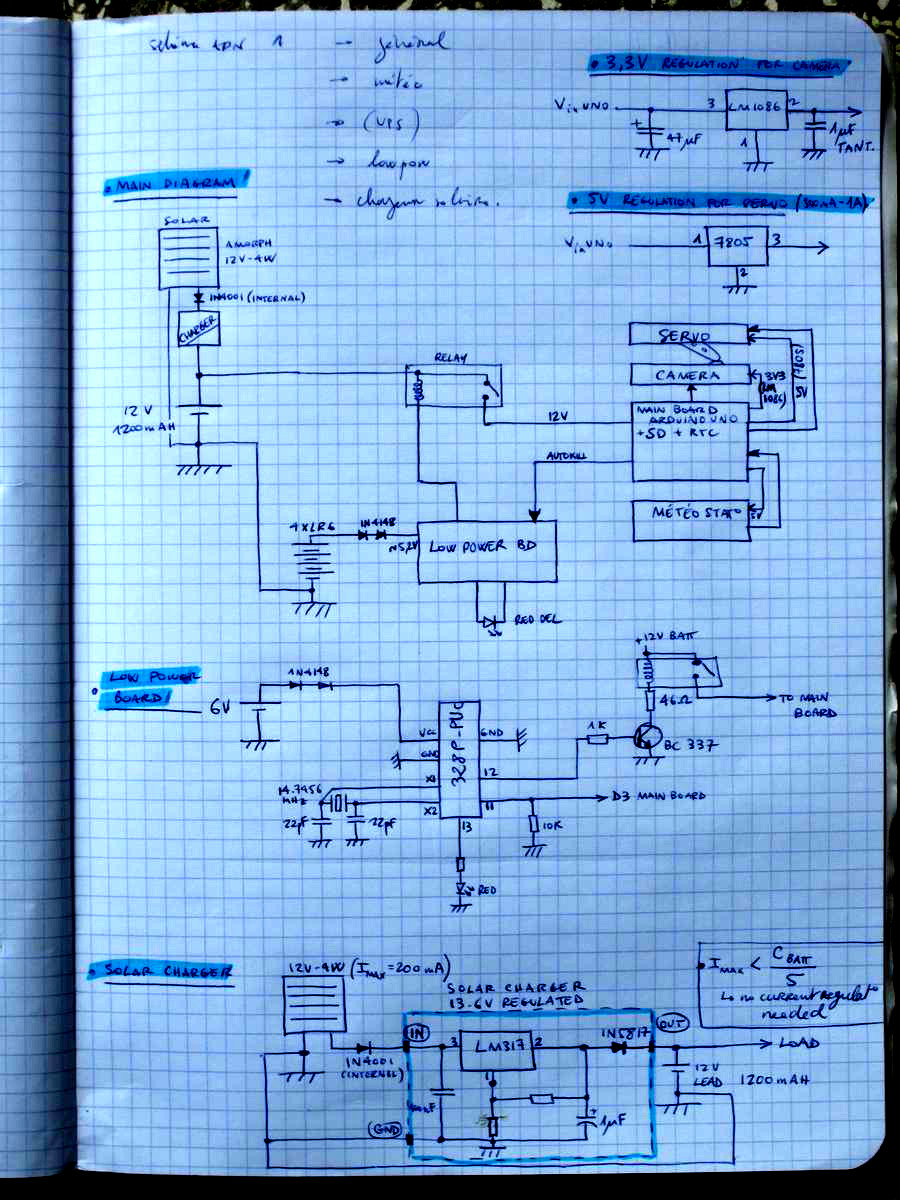 schéma APN 1 → général
→ météo
→ (UPS)
→ low pow
→ chargeur solaire.
• 3,3V REGULATION FOR CAMERA
Vin UNO
3
LM1086
2
1
+
47µF
1µF
TANT.
• MAIN DIAGRAM
• 5V REGULATION FOR SERVO (500mA-1A)
Vin UNO
1
7805
3
2
SOLAR
AMORPH
12V-4W
1N4001 (INTERNAL)
CHARGER
12V
1200mAH
RELAY
12V
AUTOKILL
SERVO
CAMERA
MAIN BOARD
ARDUINO UNO
+SD + RTC
3V3
(LM
1086)
5V (7805)
MÉTÉO STAT°
5V
4XLR6
1N4148
≈5,2V
LOW POWER BD
RED DEL
• LOW POWER
BOARD
6V
1N4148
328P-PU
VCC
GND
GND
X1
X2
12
11
13
14.7456
MHz
22pF
22pF
RED
1K
BC 337
46Ω
+12V BATT
TO MAIN
BOARD
D3 MAIN BOARD
10K
• SOLAR CHARGER
12V-4W (IMAX=200mA)
SOLAR CHARGER
13.6V REGULATED
IN
3
LM317
2
1
1N5817
OUT
LOAD
1N4001
(INTERNAL)
GND
+
1µF
12V
LEAD 1200mAH
• IMAX < CBATT
5
↳ no current regulat°
needed